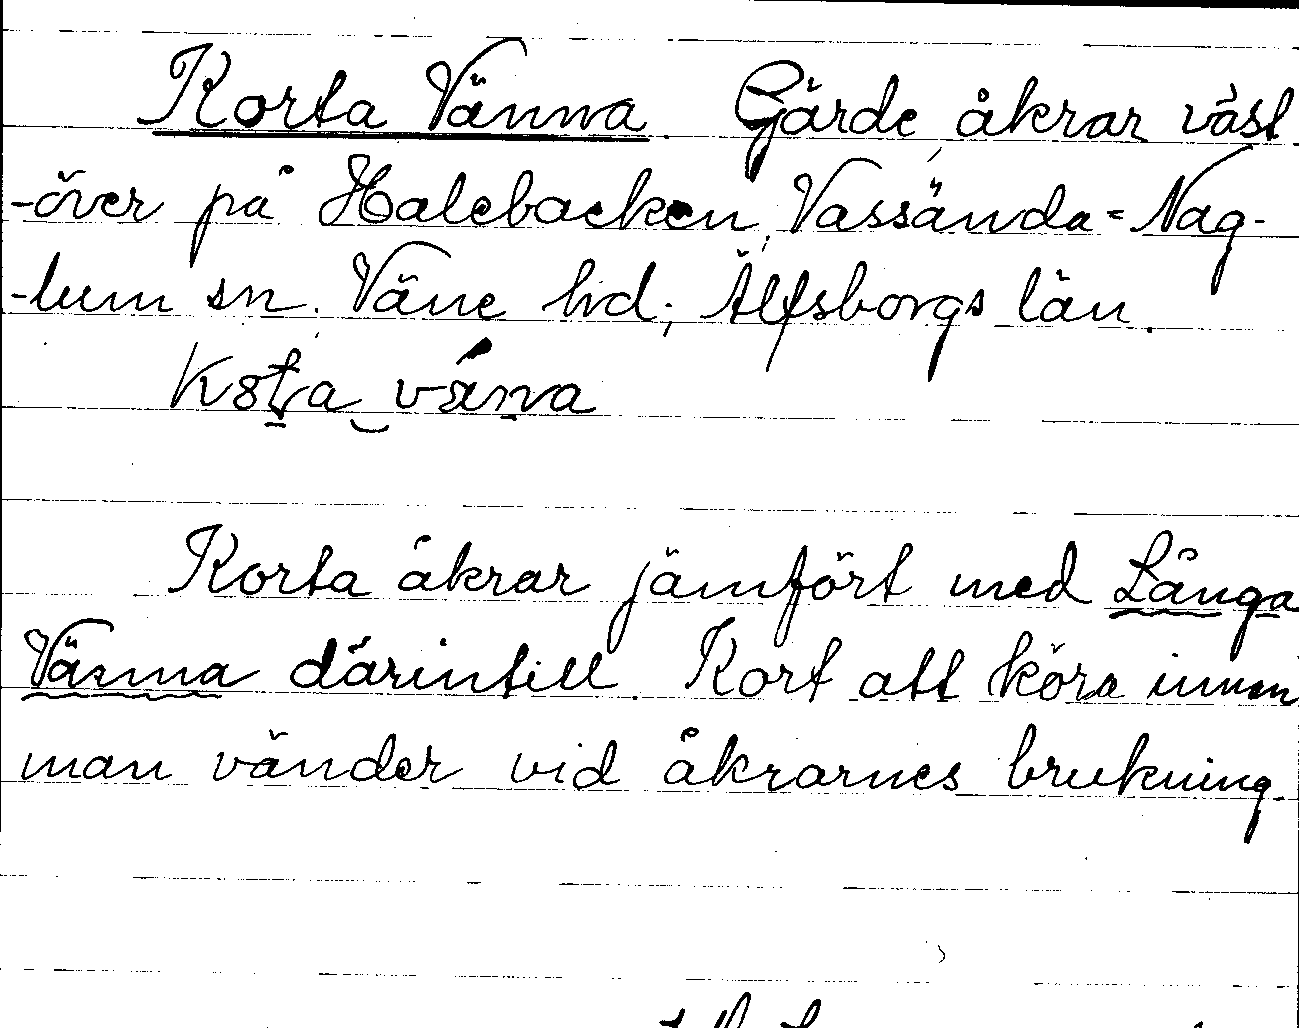 Korta Vänna. Gärde, åkrar väst-
-över på Halebacken, Vassända=Nag-
-lum sn. Väne hd; Älfsborgs län.
Korta åkrar jämfört med Långa
Vänna därintill. Kort att köra innan
man vänder vid åkrarnes brukning.